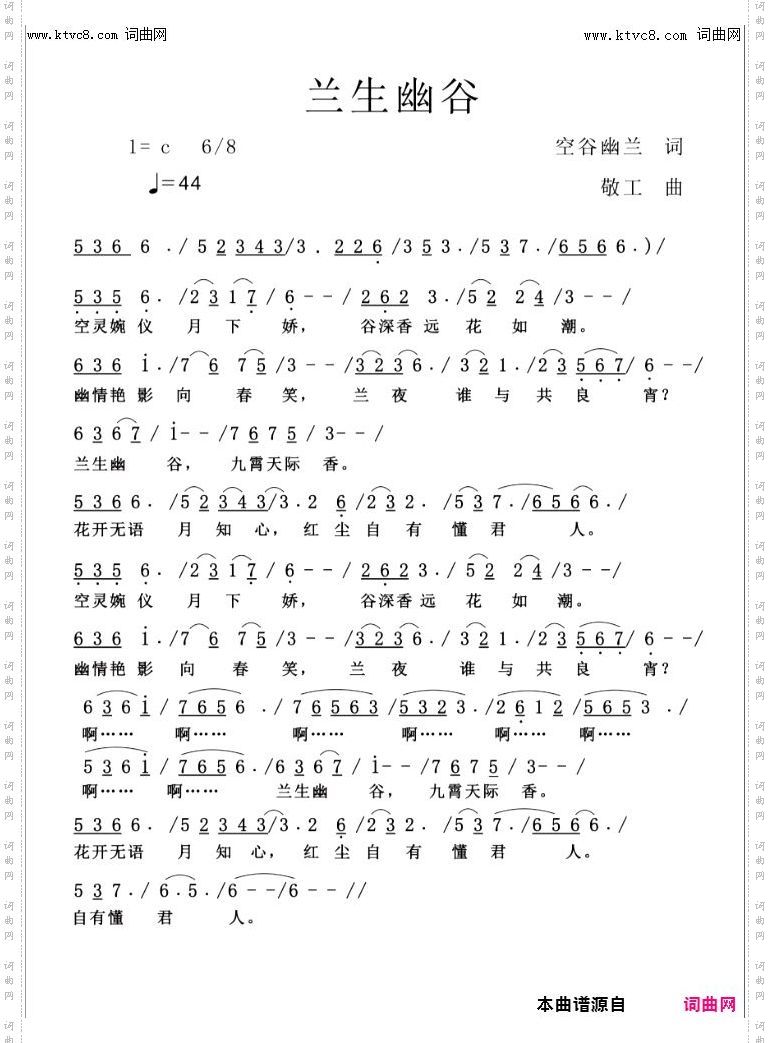 www.ktvc8.com 词曲网 www.ktvc8.com 词曲网
兰生幽谷
1= c 6/8 空谷幽兰 词
♩=44 敬工 曲
5 3 6 6 ./ 5 2 3 4 3/3 . 2 2 6 /3 5 3 ./5 3 7 ./6 5 6 6 .)/
5 3 5 6 . /2 3 1 7 / 6 - - / 2 6 2 3 ./5 2 2 4 /3 - - /
空灵婉 仪 月 下 娇， 谷深香 远 花 如 潮。
6 3 6 1 ./7 6 7 5 /3 - - /3 2 3 6 ./ 3 2 1 ./2 3 5 6 7/ 6 - -/
幽情艳 影 向 春 笑， 兰 夜 谁 与 共 良 宵？
6 3 6 7 / 1- - /7 6 7 5 / 3- - /
兰生幽 谷， 九霄天际 香。
5 3 6 6 . /5 2 3 4 3 /3 . 2 6 /2 3 2 . /5 3 7 . /6 5 6 6 . /
花开无语 月 知 心， 红 尘 自 有 懂 君 人。
5 3 5 6 . /2 3 1 7 / 6 - - / 2 6 2 3 . / 5 2 2 4 /3 - - /
空灵婉 仪 月 下 娇， 谷深香 远 花 如 潮。
6 3 6 1 ./7 6 7 5 /3 - - /3 2 3 6 ./ 3 2 1 ./2 3 5 6 7/ 6 - -/
幽情艳 影 向 春 笑， 兰 夜 谁 与 共 良 宵？
6 3 6 1 / 7 6 5 6 . / 7 6 5 6 3 /5 3 2 3 ./2 6 1 2 /5 6 5 3 . /
啊…… 啊…… 啊…… 啊…… 啊…… 啊……
5 3 6 1 / 7 6 5 6 . /6 3 6 7 / 1- - /7 6 7 5 / 3- - /
啊…… 啊…… 兰生幽 谷， 九霄天际 香。
5 3 6 6 . /5 2 3 4 3 /3 . 2 6 /2 3 2 . /5 3 7 . /6 5 6 6 . /
花开无语 月 知 心， 红 尘 自 有 懂 君 人。
5 3 7 ./ 6 . 5 . /6 - - /6 - - //
自有懂 君 人。
本曲谱源自 词曲网